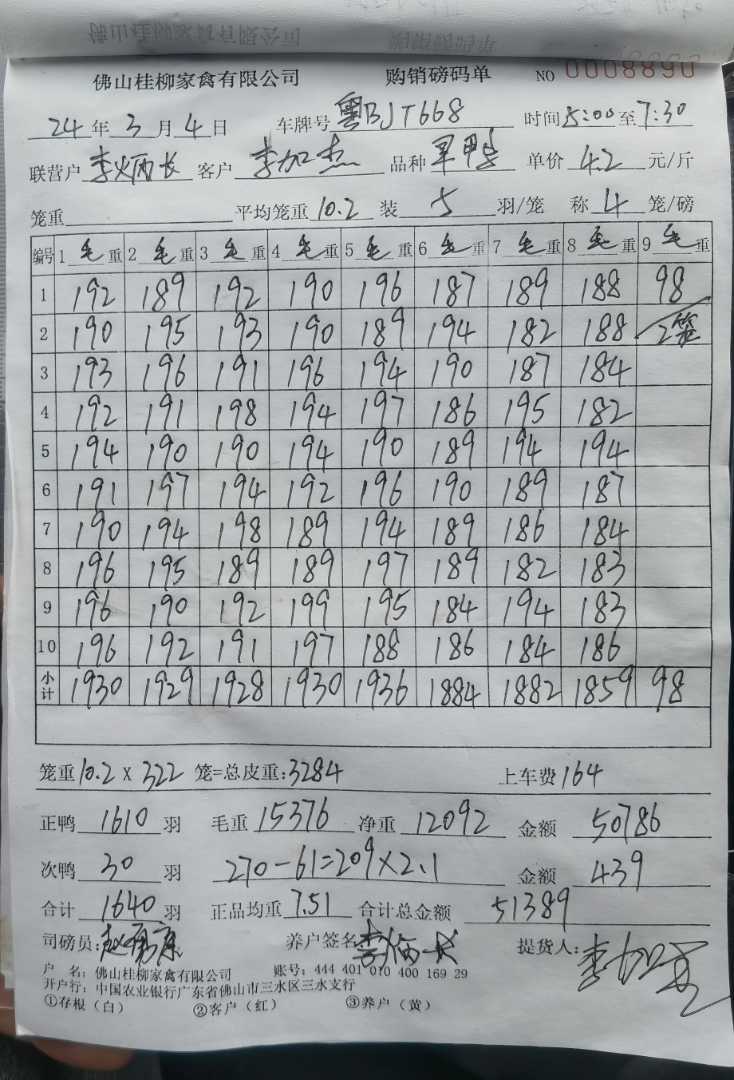 佛山桂柳家禽有限公司 购销磅码单 NO 0008890
24 年 3 月 4 日 车牌号 粤BJT668 时间 5:00 至 7:30
联营户 李炳长 客户 李加杰 品种 单价 4.2 元/斤
笼重 平均笼重 10.2 装 5 羽/笼 称 4 笼/磅
编号 1 毛重 2 毛重 3 毛重 4 毛重 5 毛重 6 毛重 7 毛重 8 毛重 9 毛重
1 192 189 192 190 196 187 189 188 98
2 190 195 193 190 189 194 182 188 2笼
3 193 196 191 196 194 190 187 184
4 192 191 198 194 197 186 195 182
5 194 190 190 194 190 189 194 194
6 191 197 194 192 196 190 189 187
7 190 194 198 189 194 189 186 184
8 196 195 189 189 197 189 182 183
9 196 190 192 199 195 184 194 183
10 196 192 191 197 188 186 184 186
小计 1930 1929 1928 1930 1936 1884 1882 1859 98
笼重 10.2 X 322 笼=总皮重:3284 上车费 164
正鸭 1610 羽 毛重 15376 净重 12092 金额 50786
次鸭 30 羽 270-61=209×2.1 金额 439
合计 1640 羽 正品均重 7.51 合计总金额 51389
司磅员: 养户签名 李炳长 提货人: 李加杰
户 名: 佛山桂柳家禽有限公司 账号: 444 401 010 400 169 29
开户行: 中国农业银行广东省佛山市三水区三水支行
①存根（白） ②客户（红） ③养户（黄）